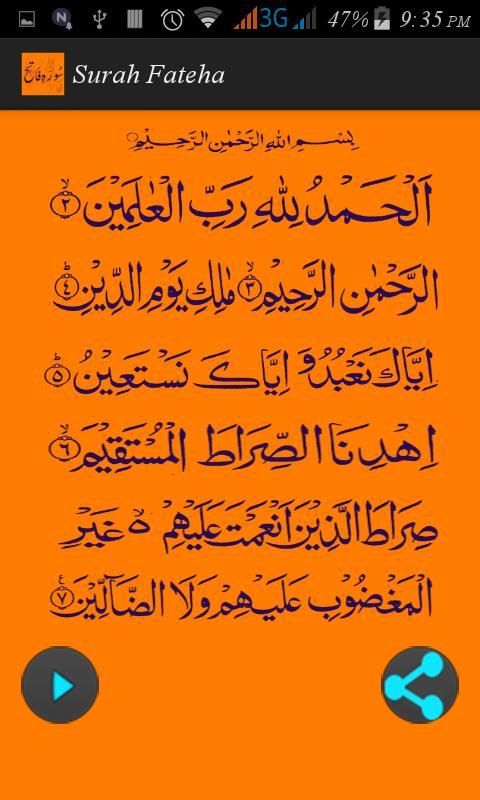 N 3G 47% 9:35 PM
سُورَۃ فَاتِحَۃ Surah Fateha
بِسْمِ اللهِ الرَّحْمٰنِ الرَّحِيْمِ
اَلْحَمْدُ لِلّٰهِ رَبِّ الْعٰلَمِيْنَ ۙ﴿۲﴾
الرَّحْمٰنِ الرَّحِيْمِ ۙ﴿۳﴾ مٰلِكِ يَوْمِ الدِّيْنِ ؕ﴿۴﴾
اِيَّاكَ نَعْبُدُ وَ اِيَّاكَ نَسْتَعِيْنُ ؕ﴿۵﴾
اِهْدِنَا الصِّرَاطَ الْمُسْتَقِيْمَ ۙ﴿۶﴾
صِرَاطَ الَّذِيْنَ اَنْعَمْتَ عَلَيْهِمْ ۙ۵ غَيْرِ
الْمَغْضُوْبِ عَلَيْهِمْ وَلَا الضَّآلِّيْنَ ﴿۷﴾